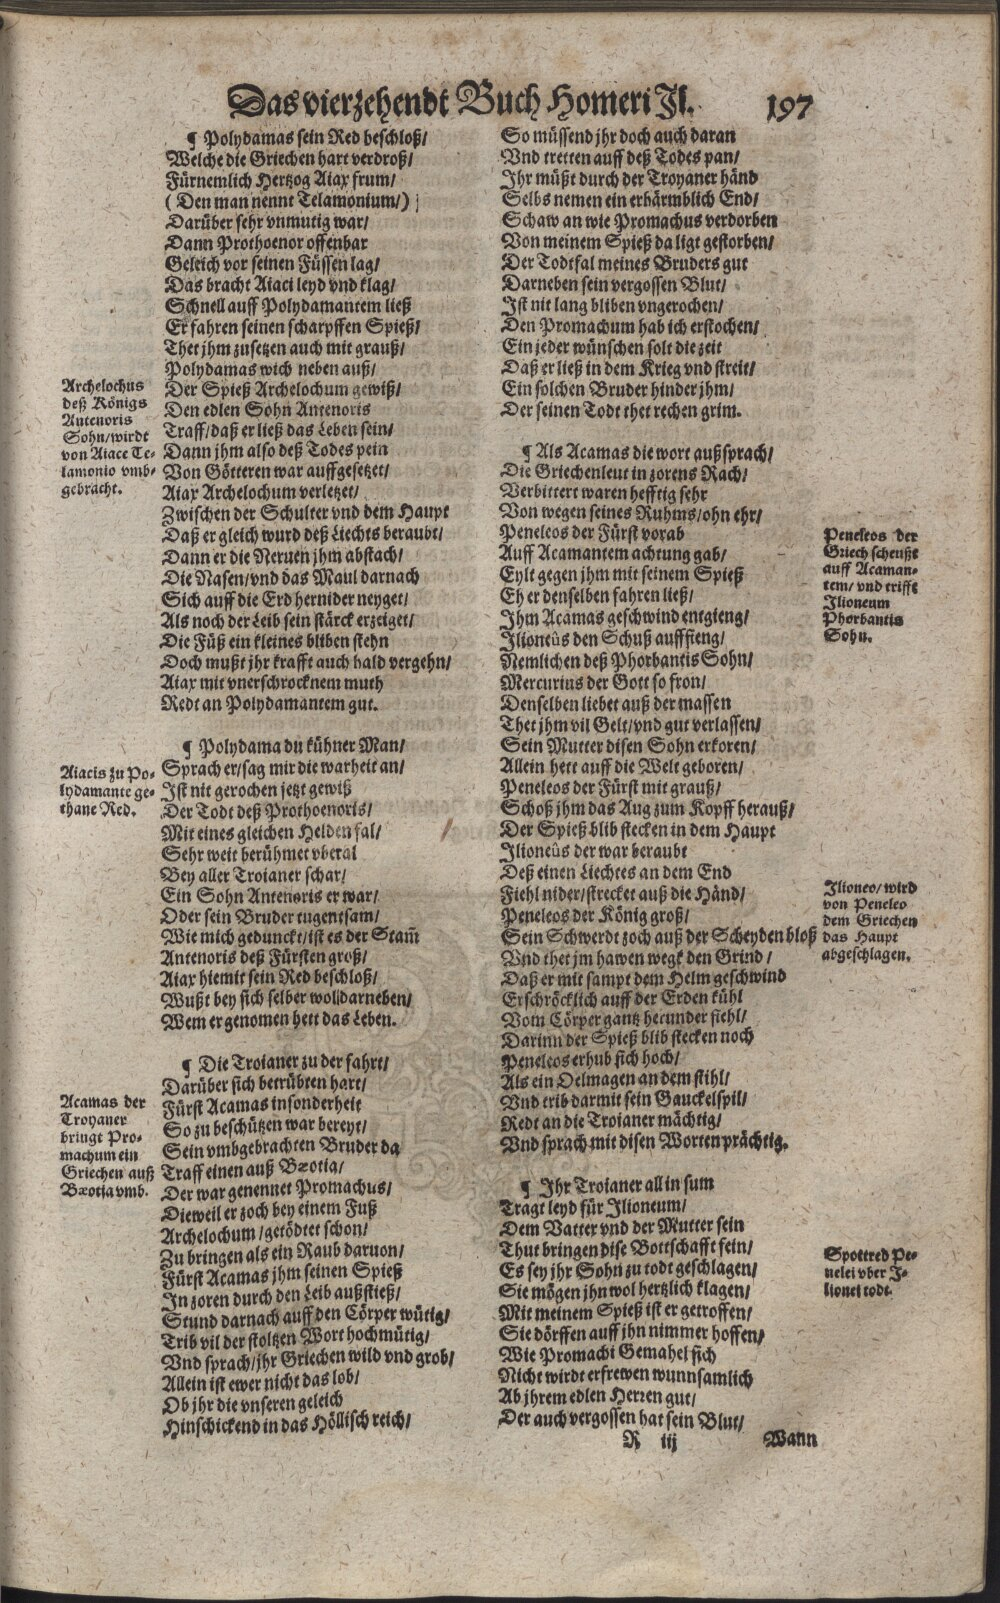 Das vierzehendt Buch Homeri Jl. 197
¶ Polydamas sein Red beschloß/
Welche die Griechen hart verdroß/
Fürnemlich Hertzog Aiax frum/
(Den man nennt Telamonium/)
Darüber sehr vnmutig war/
Dann Prothoenor offenbar
Geleich vor seinen Füssen lag/
Das bracht Aiaci leyd vnd klag/
Schnell auff Polydamantem ließ
Er fahren seinen scharpffen Spieß/
Thet jhm zusetzen auch mit grauß/
Polydamas wich neben auß/
Der Spieß Archelochum gewiß/
Den edlen Sohn Antenoris
Traff/daß er ließ das Leben sein/
Dann jhm also deß Todes pein
Von Götteren war auffgesetzet/
Aiax Archelochum verletzet/
Zwischen der Schulter vnd dem Haupt
Daß er gleich wurd deß Liechts beraubt/
Dann er die Neruen jhm abstach/
Die Nasen/vnd das Maul darnach
Sich auff die Erd hernider neyget/
Als noch der Leib sein stärck erzeiget/
Die Füß ein kleines bliben stehn
Doch mußt jhr krafft auch bald vergehn/
Aiax mit vnerschrocknem muth
Redt an Polydamantem gut.
Archelochus
deß Königs
Antenoris
Sohn/wirdt
von Aiace Te-
lamonio vmb-
gebracht.
¶ Polydama du kühner Man/
Sprach er/sag mir die warheit an/
Jst nit gerochen jetzt gewiß
Der Todt deß Prothoenoris/
Mit eines gleichen Helden fal/
Sehr weit berühmet vberal
Bey aller Troianer schar/
Ein Sohn Antenoris er war/
Oder sein Bruder tugentsam/
Wie mich gedunckt/ist es der Stam̃
Antenoris deß Fürsten groß/
Aiax hiemit sein Red beschloß/
Wußt bey sich selber wol darneben/
Wem er genomen hett das Leben.
Aiacis zu Po-
lydamante ge-
thane Red.
¶ Die Troianer zu der fahrt/
Darüber sich betrübten hart/
Fürst Acamas insonderheit
So zu beschützen war bereyt/
Sein vmbgebrachten Bruder da
Traff einen auß Bœotia/
Der war genennet Promachus/
Dieweil er zoch bey einem Fuß
Archelochum/getödtet schon/
Zu bringen als ein Raub daruon/
Fürst Acamas jhm seinen Spieß
Jn zoren durch den Leib außstieß/
Stund darnach auff den Cörper wütig/
Trib vil der stoltzen Wort hochmütig/
Vnd sprach/jhr Griechen wild vnd grob/
Allein ist ewer nicht das lob/
Ob jhr die vnseren geleich
Hinschickend in das Höllisch reich/
Acamas der
Troyaner
bringt Pro-
machum ein
Griechen auß
Bœotia vmb.
So müssend jhr doch auch daran
Vnd tretten auff deß Todes pan/
Jhr müßt durch der Troyaner händ
Selbs nemen ein erbärmblich End/
Schaw an wie Promachus verdorben
Von meinem Spieß da ligt gestorben/
Der Todtfal meines Bruders gut
Darneben sein vergossen Blut/
Jst nit lang bliben vngerochen/
Den Promachum hab ich erstochen/
Ein jeder wünschen solt die zeit
Daß er ließ in dem Krieg vnd streit/
Ein solchen Bruder hinder jhm/
Der seinen Todt thet rechen grim.
¶ Als Acamas die wort außsprach/
Die Griechenleut in zorens Rach/
Verbittert waren hefftig sehr
Von wegen seines Ruhms/ohn ehr/
Peneleos der Fürst vorab
Auff Acamantem achtung gab/
Eylt gegen jhm mit seinem Spieß
Eh er denselben fahren ließ/
Jhm Acamas geschwind entgieng/
Jlioneûs den Schuß aufffieng/
Nemlichen deß Phorbantis Sohn/
Mercurius der Gott so fron/
Denselben liebet auß der massen
Thet jhm vil Gelt/vnd gut verlassen/
Sein Mutter disen Sohn erkoren/
Allein hett auff die Welt geboren/
Peneleos der Fürst mit grauß/
Schoß jhm das Aug zum Kopff herauß/
Der Spieß blib stecken in dem Haupt
Jlioneûs der war beraubt
Deß einen Liechtes an dem End
Fiehl nider/strecket auß die Händ/
Peneleos der König groß/
Sein Schwerdt zoch auß der Scheyden bloß
Vnd thet jm hawen wegk den Grind/
Daß er mit sampt dem Helm geschwind
Erschröcklich auff der Erden kühl
Vom Cörper gantz herunder fiehl/
Darinn der Spieß blib stecken noch
Peneleos erhub sich hoch/
Als ein Oelmagen an dem stihl/
Vnd trib darmit sein Gauckelspil/
Redt an die Troianer mächtig/
Vnd sprach mit disen Worten prächtig.
Peneleos der
Griech scheußt
auff Acaman-
tem/vnd trifft
Jlioneum
Phorbantis
Sohn.
Jlioneo/wird
von Peneleo
dem Griechen
das Haupt
abgeschlagen.
¶ Jhr Troianer all in sum
Tragt leyd für Jlioneum/
Dem Vatter vnd der Mutter sein
Thut bringen dise Bottschafft fein/
Es sey jhr Sohn zu todt geschlagen/
Sie mögen jhn wol hertzlich klagen/
Mit meinem Spieß ist er getroffen/
Sie dörffen auff jhn nimmer hoffen/
Wie Promachi Gemahel sich
Nicht wirdt erfrewen wunnsamlich
Ab jhrem edlen Herren gut/
Der auch vergossen hat sein Blut/
Spottred Pe-
nelei vber J-
lionei todt.
R iij Wann